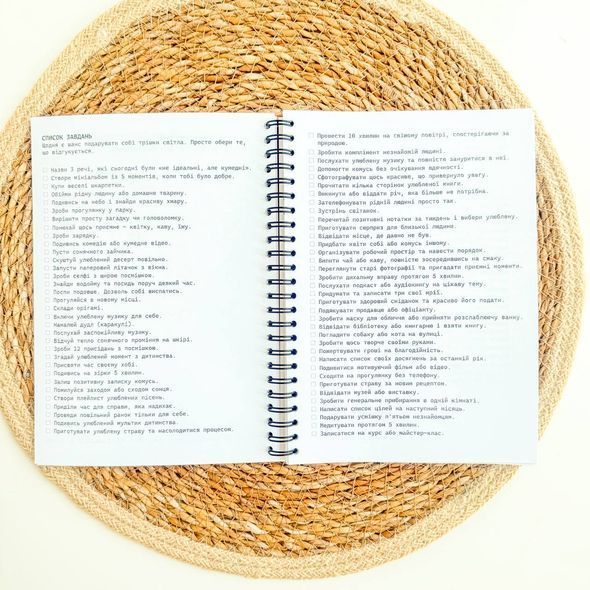 СПИСОК ЗАВДАНЬ
Щодня є шанс подарувати собі трішки світла. Просто обери те,
що відгукується.
Назви 3 речі, які сьогодні були «не ідеальні, але кумедні».
Створи мініальбом із 5 моментів, коли тобі було добре.
Купи веселі шкарпетки.
Обійми рідну людину або домашню тварину.
Подивись на небо і знайди красиву хмару.
Зроби прогулянку у парку.
Виріши просту загадку чи головоломку.
Понюхай щось приємне — квітку, каву, їжу.
Зроби зарядку.
Подивись комедію або кумедне відео.
Пусти сонячного зайчика.
Скуштуй улюблений десерт повільно.
Запусти паперовий літачок з вікна.
Зроби селфі з широю посмішкою.
Знайди водойму та посидь поруч деякий час.
Поспи подовше. Дозволь собі виспатись.
Прогуляйся в новому місці.
Склади орігамі.
Включи улюблену музику для себе.
Намалюй дудл (каракулі).
Послухай заспокійливу музику.
Відчуй тепло сонячного проміння на шкірі.
Зроби 12 присідань з посмішкою.
Згадай улюблений момент з дитинства.
Присвяти час своєму хобі.
Подивись на зірки 5 хвилин.
Залиш позитивну записку комусь.
Помилуйся заходом або сходом сонця.
Створи плейлист улюблених пісень.
Приділи час для справи, яка надихає.
Проведи повільний ранок тільки для себе.
Подивись улюблений мультик дитинства.
Приготувати улюблену страву та насолодитися процесом.
Провести 10 хвилин на свіжому повітрі, спостерігаючи за
природою.
Зробити комплімент незнайомій людині.
Послухати улюблену музику та повністю зануритися в неї.
Допомогти комусь без очікування вдячності.
Сфотографувати щось красиве, що привернуло увагу.
Прочитати кілька сторінок улюбленої книги.
Викинути або віддати річ, яка більше не потрібна.
Зателефонувати рідній людині просто так.
Зустрінь світанок.
Перечитай позитивні нотатки за тиждень і вибери улюблену.
Приготувати сюрприз для близької людини.
Відвідати місце, де давно не був.
Придбати квіти собі або комусь іншому.
Організувати робочий простір та навести порядок.
Випити чай або каву, повністю зосередившись на смаку.
Переглянути старі фотографії та пригадати приємні моменти.
Зробити дихальну вправу протягом 5 хвилин.
Послухати подкаст або аудіокнигу на цікаву тему.
Придумати та записати три свої мрії.
Приготувати здоровий сніданок та красиво його подати.
Подякувати продавцю або офіціанту.
Зробити маску для обличчя або прийняти розслаблюючу ванну.
Відвідати бібліотеку або книгарню і взяти книгу.
Погладити собаку або кота на вулиці.
Зробити щось творче своїми руками.
Пожертвувати гроші на благодійність.
Написати список своїх досягнень за останній рік.
Подивитися мотивуючий фільм або відео.
Сходити на прогулянку без телефону.
Приготувати страву за новим рецептом.
Відвідати музей або виставку.
Зробити генеральне прибирання в одній кімнаті.
Написати список цілей на наступний місяць.
Подарувати усмішку п'ятьом незнайомцям.
Медитувати протягом 5 хвилин.
Записатися на курс або майстер-клас.